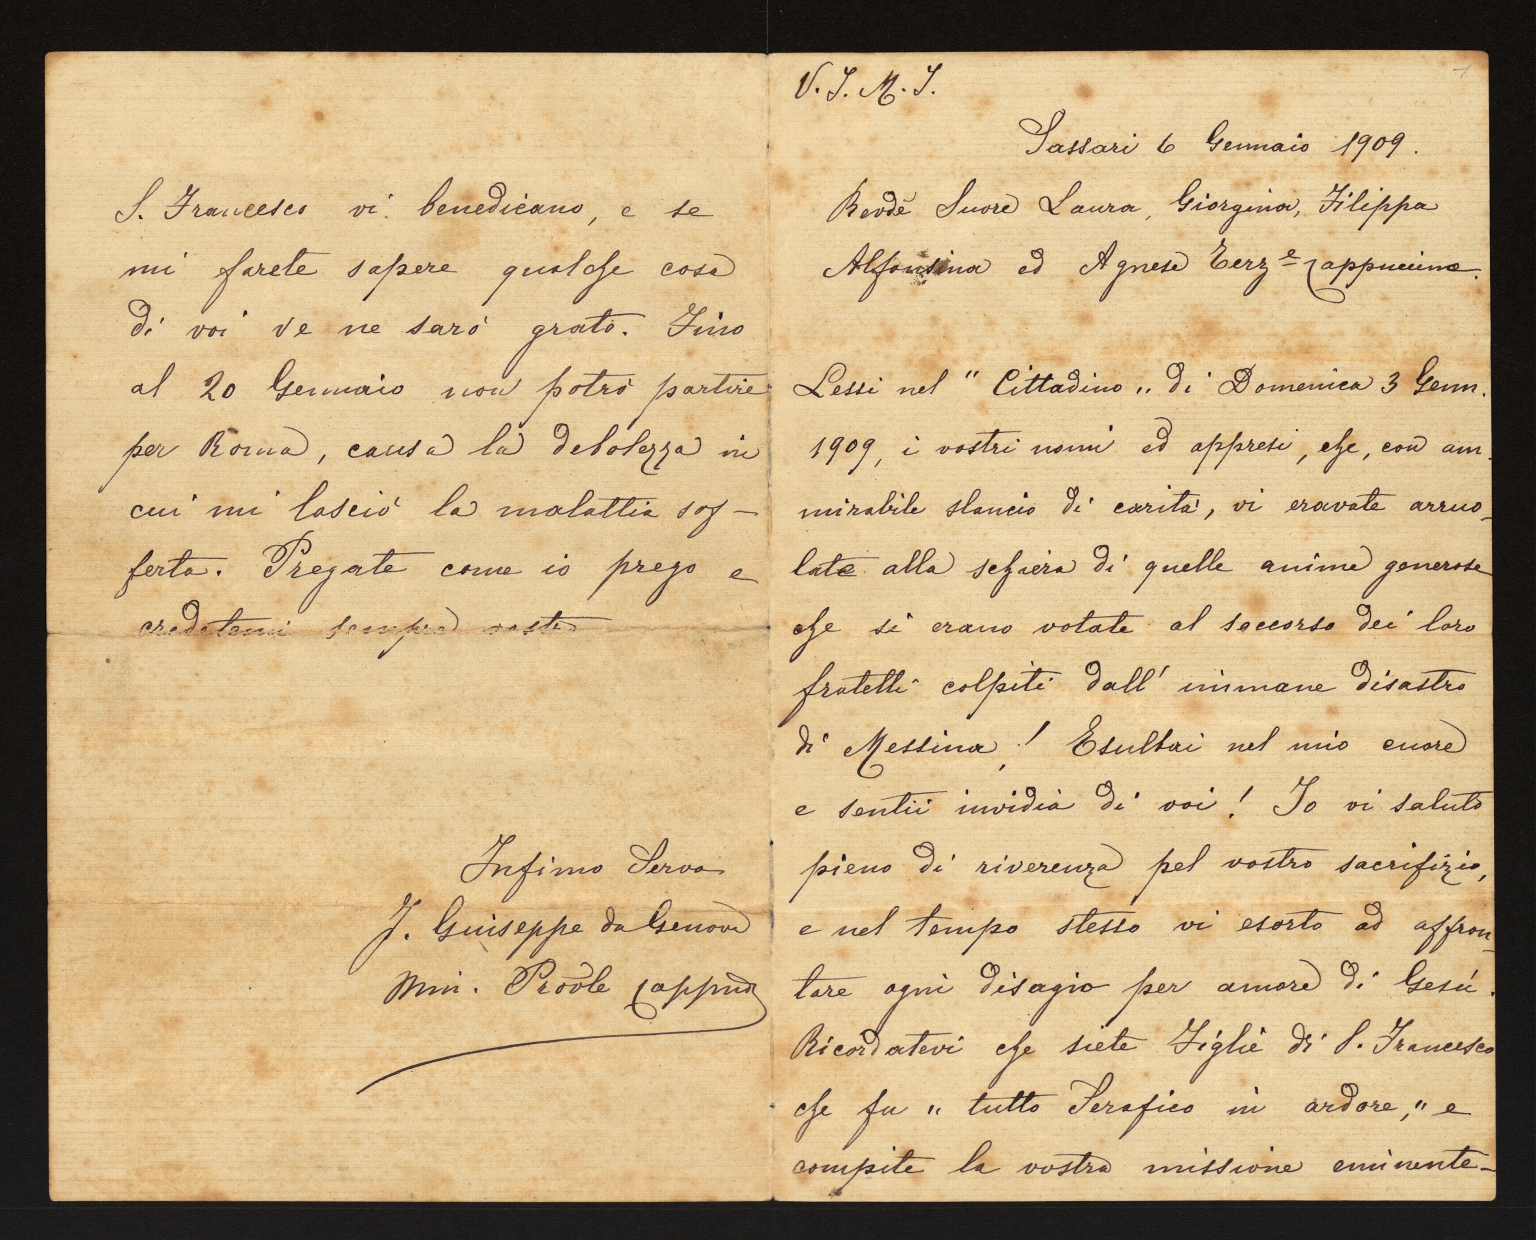 V. J. M. J.
Sassari 6 Gennaio 1909.
Revde Suore Laura, Giorgina, Filippa
Alfonsina ed Agnese Terz.e Cappuccine.
Lessi nel " Cittadino „ di Domenica 3 Genn.
1909, i vostri nomi ed appresi, che, con am-
mirabile slancio di carità, vi eravate arruo-
late alla schiera di quelle anime generose
che si erano votate al soccorso dei loro
fratelli colpiti dall' immane disastro
di Messina! Esultai nel mio cuore
e sentii invidia di voi! Io vi saluto
pieno di riverenza pel vostro sacrifizio,
e nel tempo stesso vi esorto ad affron-
tare ogni disagio per amore di Gesù.
Ricordatevi che siete Figlie di S. Francesco
che fu „ tutto Serafico in ardore," e
compite la vostra missione eminente-
S. Francesco vi benedicano, e se
mi farete sapere qualche cosa
di voi ve ne sarò grato. Fino
al 20 Gennaio non potrò partire
per Roma, causa la debolezza in
cui mi lasciò la malattia sof-
ferta. Pregate come io prego e
credetemi sempre vostro
Infimo Servo
F. Giuseppe da Genova
Min. Provle Cappno